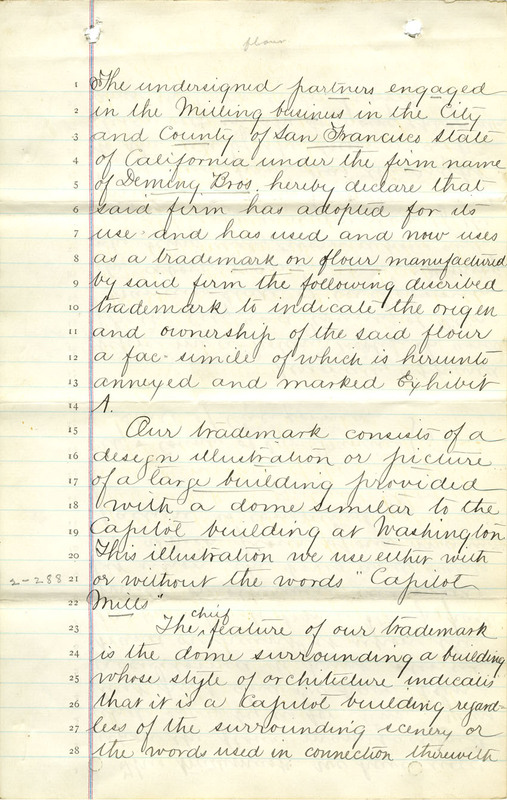 flour
1 The undersigned partners engaged
2 in the Milling business in the City
3 and County of San Francisco State
4 of California under the firm name
5 of Deming Bros. hereby declare that
6 said firm has adopted for its
7 use and has used and now uses
8 as a trademark on flour manufactured
9 by said firm the following discribed
10 trademark to indicate the origen
11 and ownership of the said flour
12 a fac-simile of which is hereunto
13 annexed and marked Exhibit
14 A.
15 Our trademark consists of a
16 design illustration or picture
17 of a large building provided
18 with a dome similar to the
19 Capitol building at Washington
20 This illustration we use either with
2-288 21 or without the words "Capitol
22 Mills"
chief
23 The feature of our trademark
24 is the dome surrounding a building
25 whose style of architicture indicates
26 that it is a Capitol building regard-
27 less of the surrounding scenery or
28 the words used in connection therewith